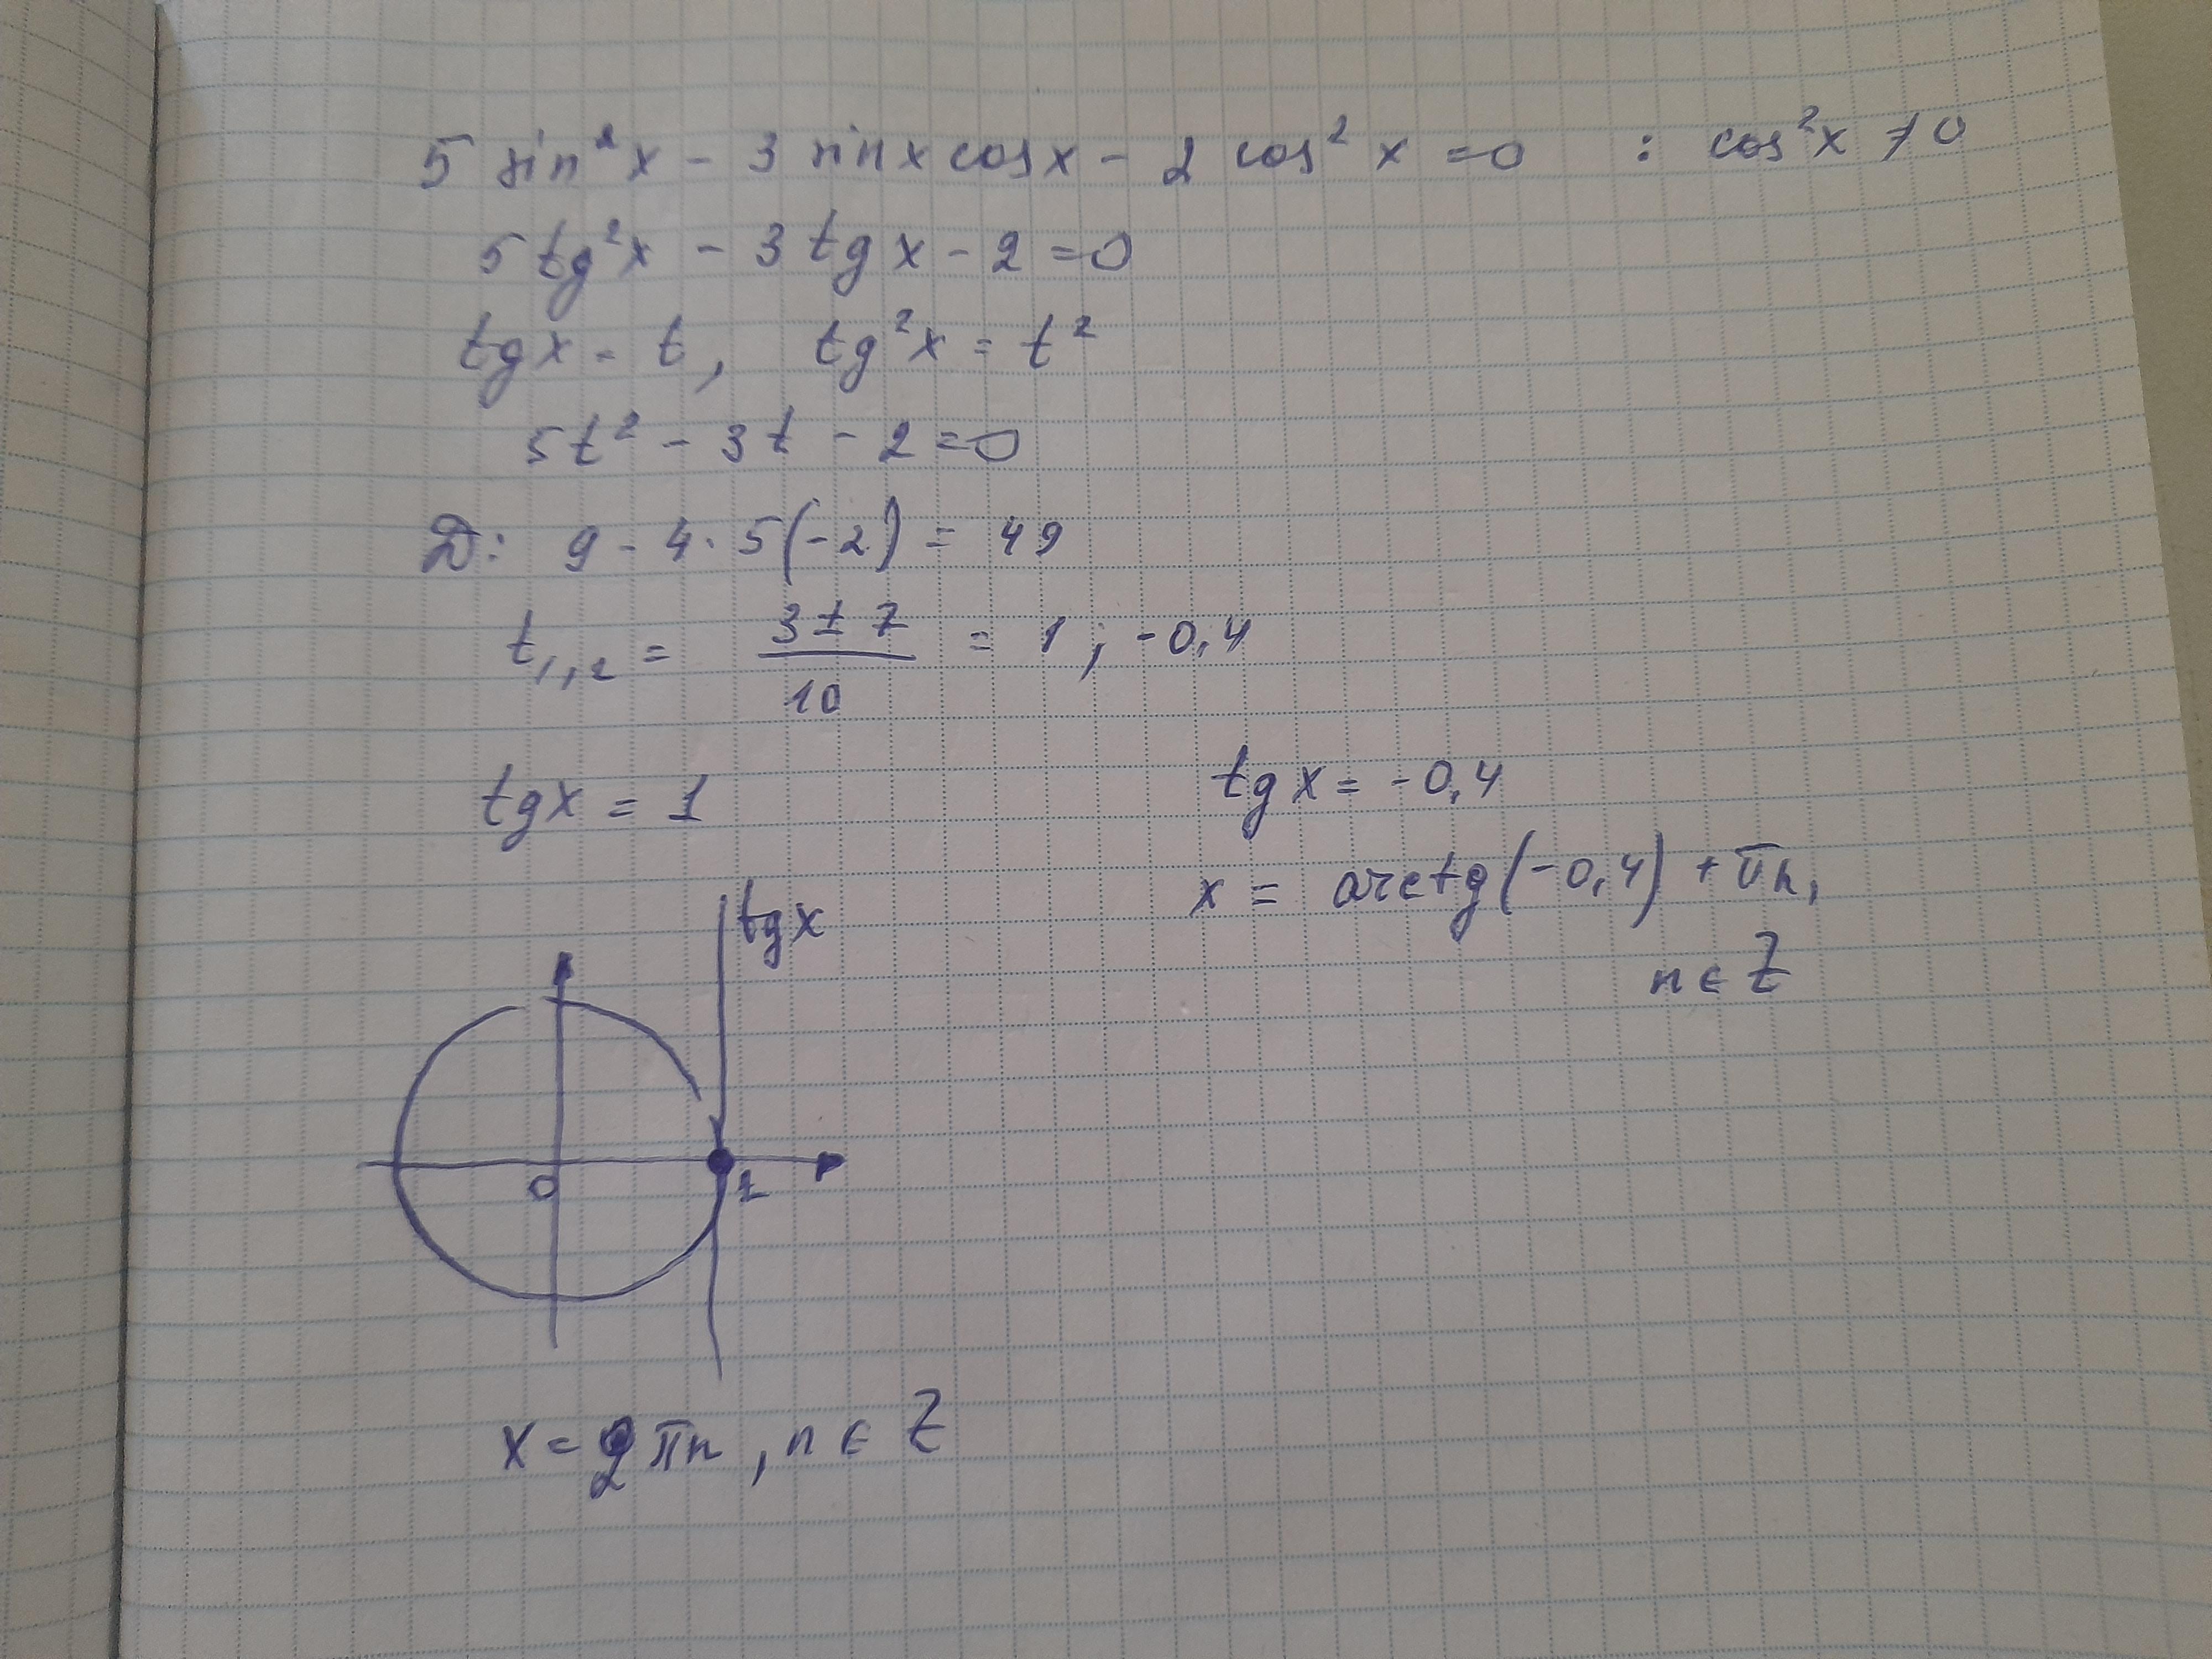 5 sin²x - 3 sin x cos x - 2 cos² x = 0 : cos²x ≠ 0
5 tg²x - 3 tg x - 2 = 0
tg x = t, tg²x = t²
5t² - 3t - 2 = 0
D: 9 - 4·5(-2) = 49
t₁,₂ = (3 ± 7)/10 = 1; -0,4
tg x = 1
tg x
0
1
x = 2πn, n ∈ Z
tg x = -0,4
x = arctg(-0,4) + πn,
n ∈ Z